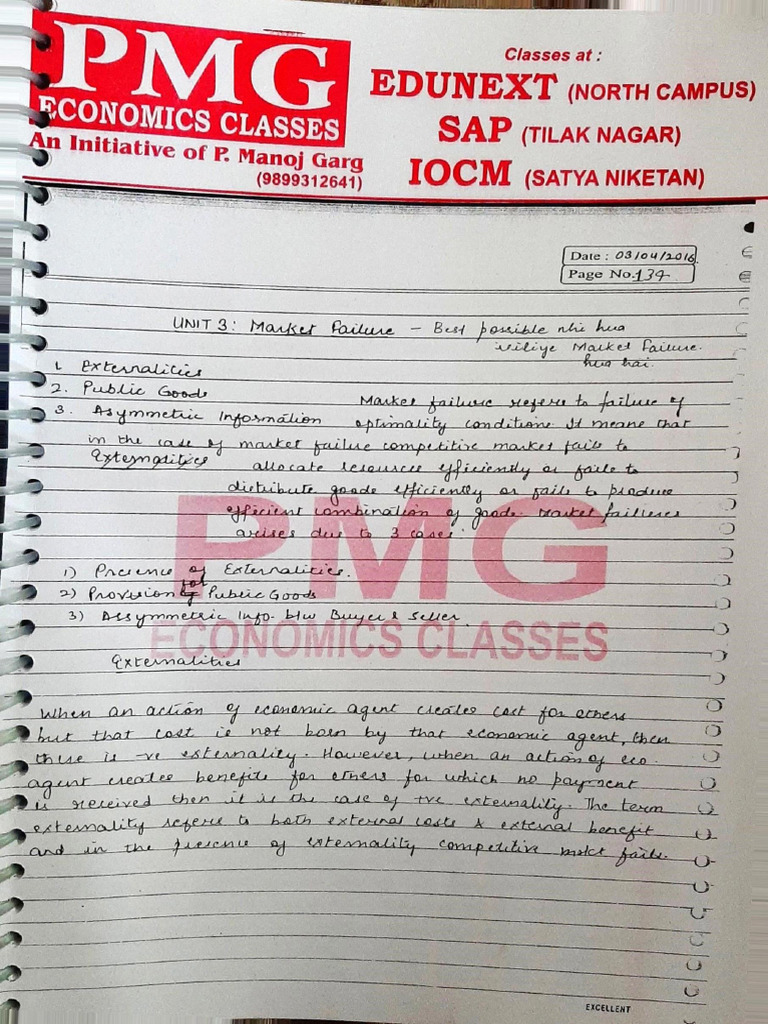 PMG
ECONOMICS CLASSES
An Initiative of P. Manoj Garg
(9899312641)
Classes at :
EDUNEXT (NORTH CAMPUS)
SAP (TILAK NAGAR)
IOCM (SATYA NIKETAN)
Date : 03/04/2016
Page No. 134
UNIT 3: Market Failure – Best possible nhi hua
isiliye Market Failure
hua hai.
1. Externalities
2. Public Goods
Market failure refers to failure of
3. Asymmetric Information optimality conditions. It means that
in the case of market failure competitive market fails to
Externalities allocate resources efficiently or fails to
distribute goods efficiently or fails to produce
efficient combination of goods. Market failures
arises due to 3 cases:
1) Presence of Externalities.
2) Provision for Public Goods
3) Assymmetric Info. b/w Buyer & Seller.
PMG
ECONOMICS CLASSES
Externalities
When an action of economic agent creates cost for others
but that cost is not born by that economic agent, then
there is -ve externality. However, when an action of eco.
agent creates benefits for others for which no payment
is received then it is the case of +ve externality. The term
externality refers to both external costs & external benefit
and in the presence of externality competitive mkt fails.
EXCELLENT